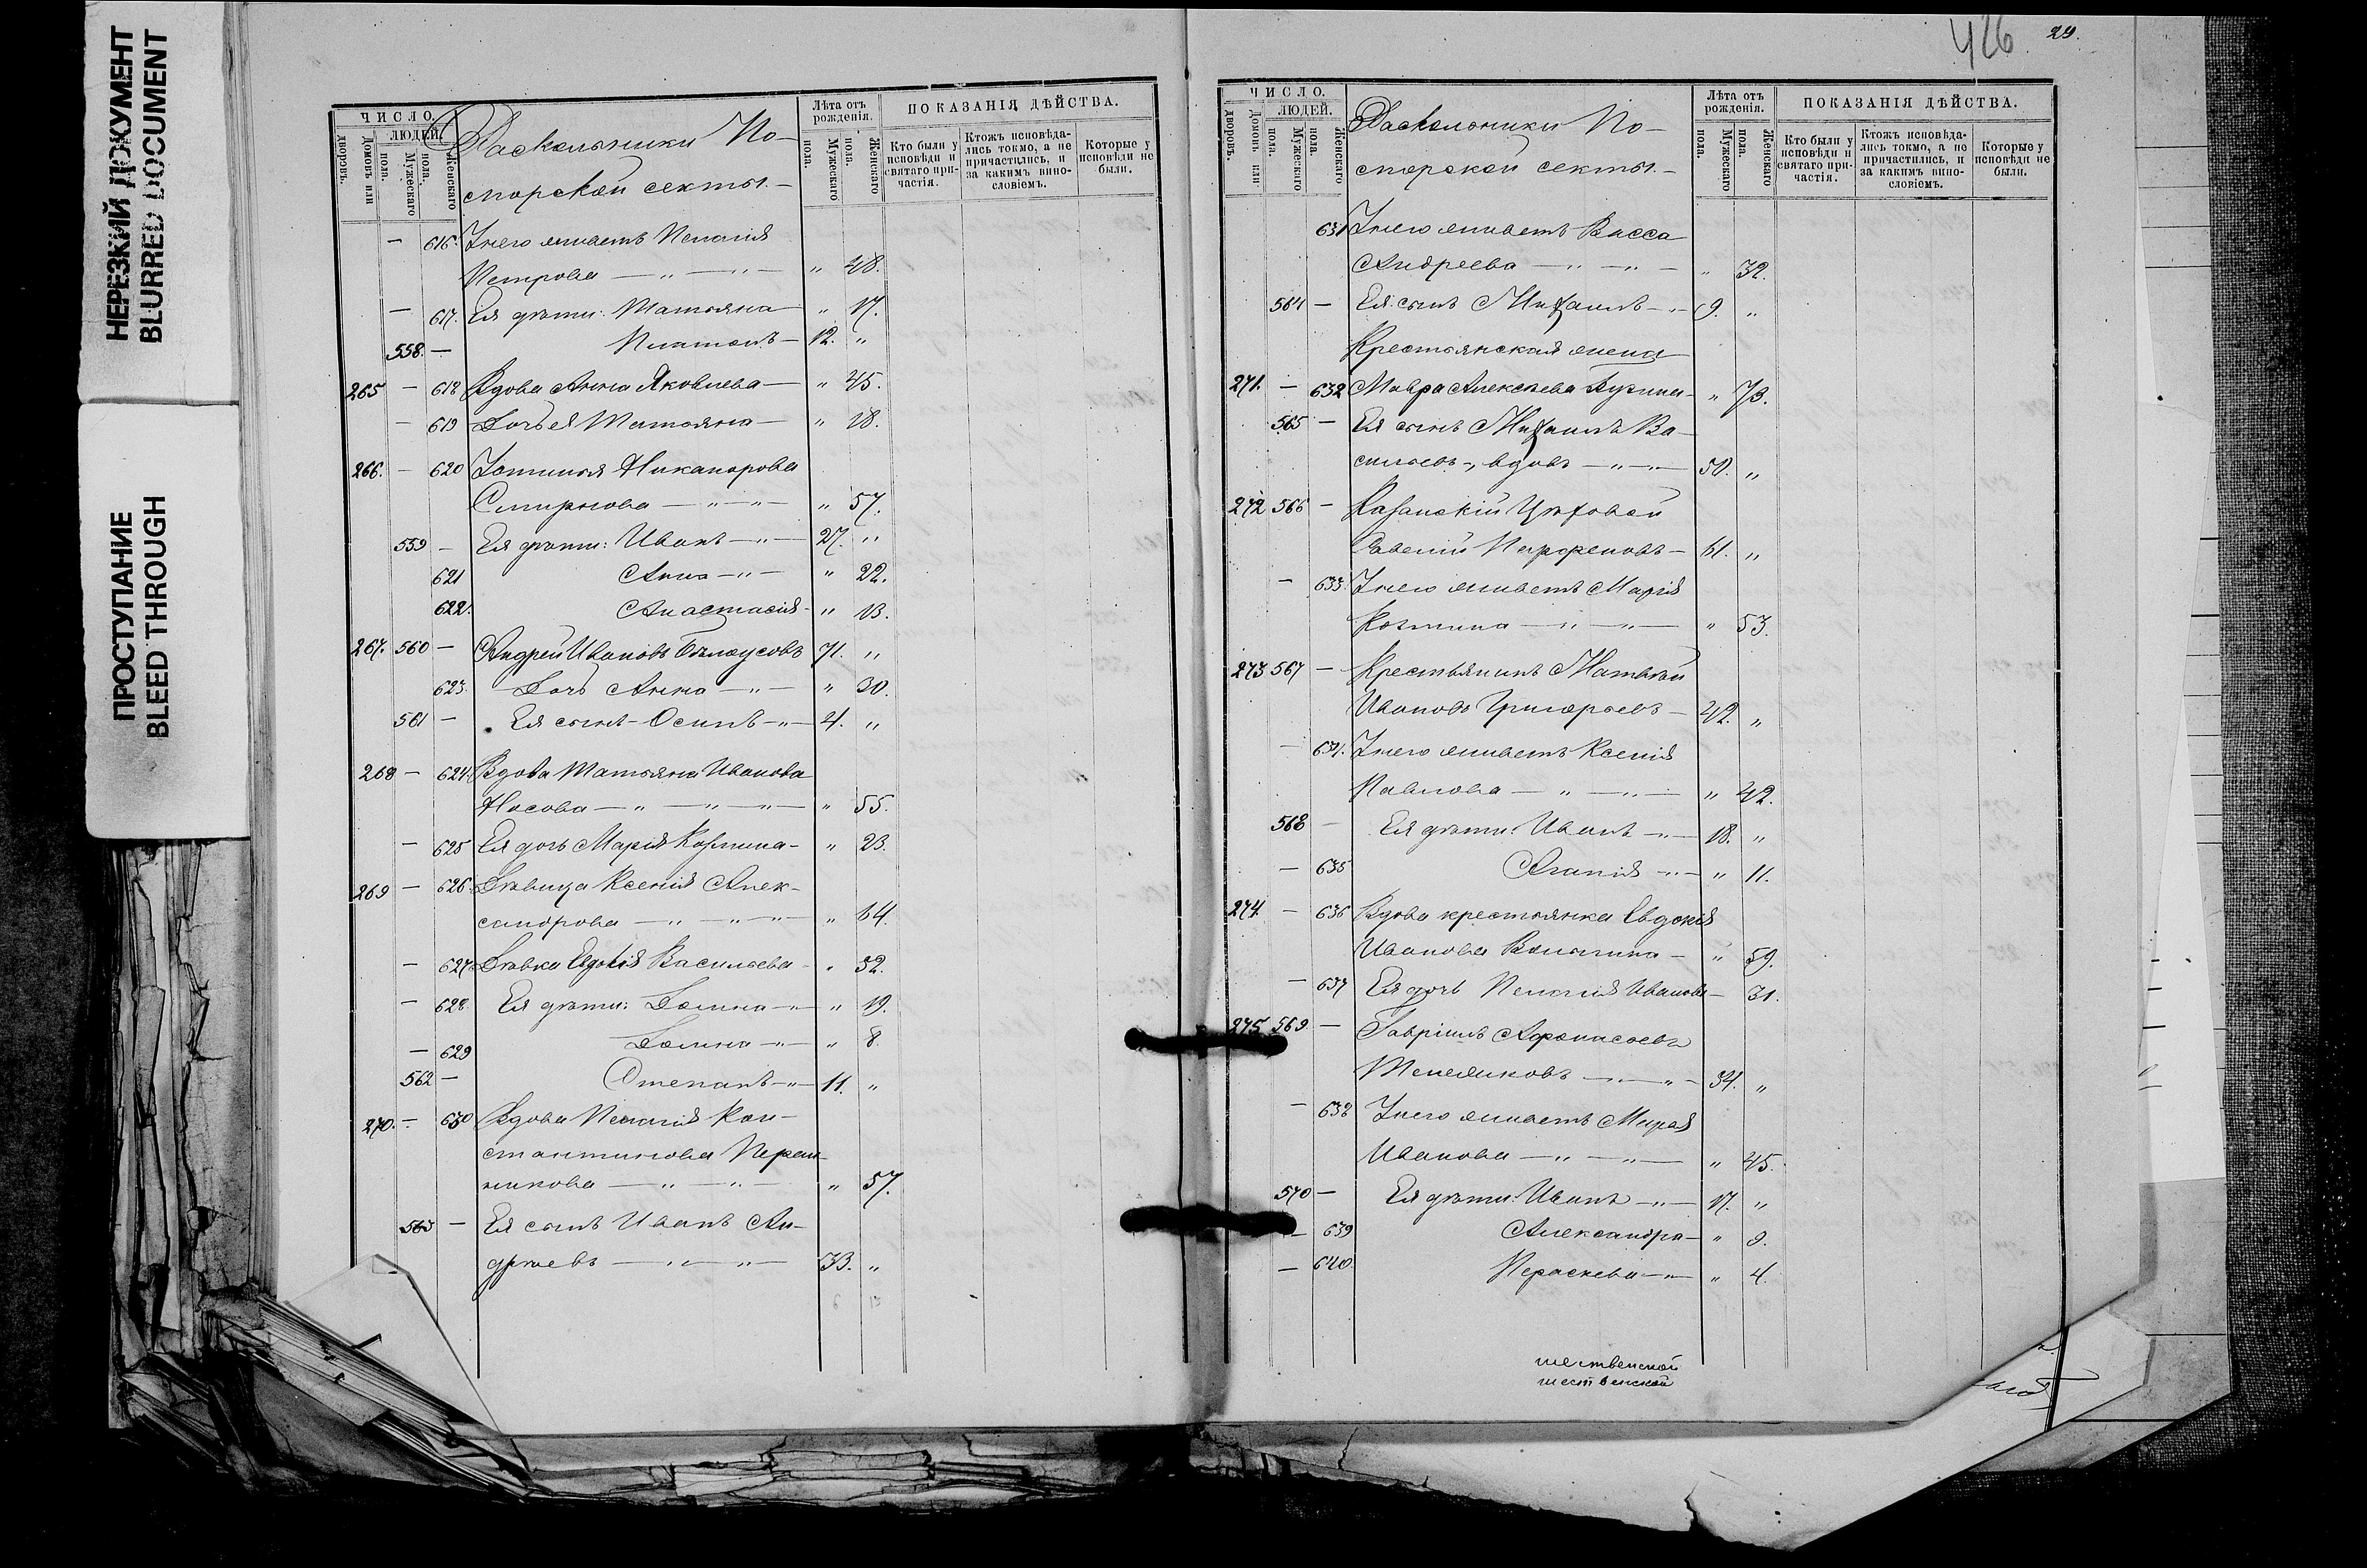 НЕРЕЗКИЙ ДОКУМЕНТ
BLURRED DOCUMENT
ПРОСТУПАНИЕ
BLEED THROUGH
ЧИСЛО.
ЛЮДЕЙ.
Домовъ или дворовъ.
Мужескаго пола.
Женскаго пола.
Раскольники По-
морской секты.-
Лѣта отъ рожденія.
Мужескаго пола.
Женскаго пола.
ПОКАЗАНІЯ ДѢЙСТВА.
Кто были у исповѣди и святаго причастія.
Ктожъ исповѣдались токмо, а не причастились, и за какимъ винословіемъ.
Которые у исповѣди не были.
— 616. У него живетъ Пелагія
Петрова — „ — „ — „ 48.
— 617. Ея дѣти: Татьяна — „ 17.
558. — Платонъ — 12. „
265 — 618 Вдова Анна Яковлева — „ 45.
— 619 Дочь ея Татьяна — „ 18.
266. — 620 Устинья Никанорова
Смирнова — „ — „ — „ 57.
559 — Ея дѣти: Иванъ — „ — 27. „
621 Анна — „ — „ 22.
622. Анастасія — „ 13.
267. 560 — Андрей Ивановъ Бѣлоусовъ 71. „
623. Дочь Анна — „ — „ 30.
561 — Ея сынъ — Осипъ — „ — 4. „
268 — 624 Вдова Татьяна Иванова
Носова — „ — „ — „ — „ 55.
— 625 Ея дочь Марія Козмина — „ 23.
269 — 626. Дѣвица Ксенія Алек-
сандрова — „ — „ — „ — „ 64.
— 627. Дѣвка Евдокія Васильева — „ 32.
— 628. Ея дѣти: Домна — „ — „ 19.
— 629 Домна — „ — „ 8.
562 — Степанъ — „ — 11. „
270. — 630 Вдова Пелагія Кон-
стантинова
никова — „ — „ — „ 57.
563 — Ея сынъ Иванъ Ан-
дреевъ — „ — „ — 33. „
6 13
426 29.
ЧИСЛО.
ЛЮДЕЙ.
Домовъ или дворовъ.
Мужескаго пола.
Женскаго пола.
Раскольники По-
морской секты.-
Лѣта отъ рожденія.
Мужескаго пола.
Женскаго пола.
ПОКАЗАНІЯ ДѢЙСТВА.
Кто были у исповѣди и святаго причастія.
Ктожъ исповѣдались токмо, а не причастились, и за какимъ винословіемъ.
Которые у исповѣди не были.
631 У него живетъ Васса
Андреева — „ — „ — „ 32.
564 — Ея сынъ Михаилъ — „ — 9. „
Крестьянская жена
271. — 632 Мавра Алексѣева — „ 73.
565 — Ея сынъ Михаилъ Ва-
сильевъ -, вдовъ — „ — „ — 50. „
272 566 — Казанскій Цѣховой
Савелій Парфеновъ — 61. „
— 633. У него живетъ Марія
Козмина — „ — „ — „ 53.
273 567 — Крестьянинъ Матвѣй
Ивановъ Григорьевъ — 42. „
— 634. У него живетъ Ксенія
Павлова — „ — „ — „ 42.
568 — Ея дѣти: Иванъ — „ — 18. „
— 635 Агапія — „ — „ 11.
274. — 636 Вдова крестьянка Евдокія
Иванова — „ 59.
— 637 Ея дочь Пелагія Иванова — 31.
275 569. — Гавріилъ Афонасьевъ
— „ — „ — 34. „
— 638 У него живетъ Марья
Иванова — „ — „ — „ 45.
570 — Ея дѣти: Иванъ — „ — 17. „
— 639 Александра — „ 9.
— 640. Параскева — „ — „ 4.
шественской
шественской